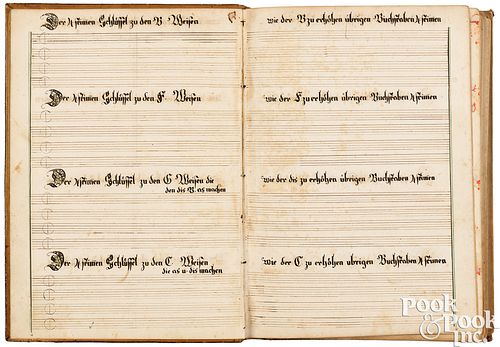 Der 4 stimen Schlüssel zu den B Weisen
wie der B zu erhöhen übrigen Buchstaben 4 stimen
Der 4 stimen Schlüssel zu den F. Weisen
wie der F zu erhöhen übrigen Buchstaben 4 stimen
Der 4 stimen Schlüssel zu den G Weisen die
den dis B. as machen
wie der dis zu erhöhen übrigen Buchstaben 4 stimen
Der 4 stimen Schlüssel zu den C. Weisen
die as u. dis machen
wie der C zu erhöhen übrigen Buchstaben 4 stimen
POOK
& POOK
INC.